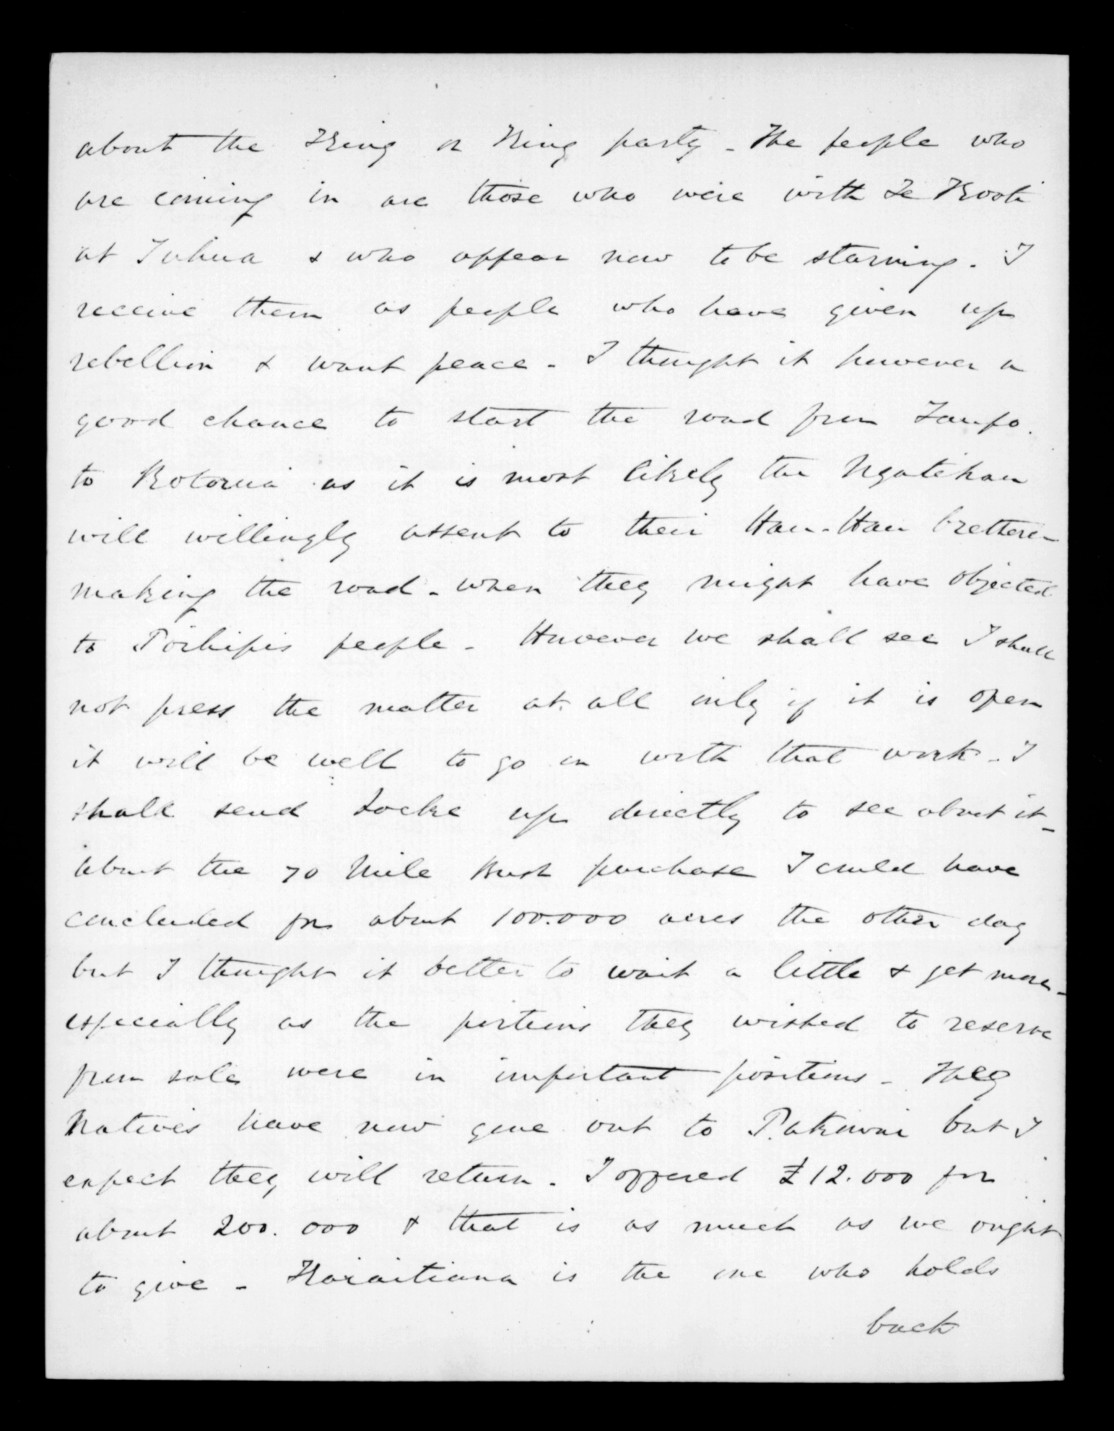 about the King or King party - The people who
are coming in are those who were with Te Kooti
at Tuhua & who appear now to be starving. I
receive them as people who have given up
rebellion & want peace - I thought it however a
good chance to start the road from Taupo.
to Rotorua as it is most likely the Ngatihau
will willingly assent to their Hau-Hau brethren
making the road - when they might have objected
to Poihipis people - However we shall see I shall
not press the matter at all only if it is open
it will be well to go on with that work - I
shall send Locke up directly to see about it -
about the 70 Mile Bush purchase I could have
concluded for about 100.000 acres the other day
but I thought it better to wait a little & get more -
especially as the portions they wished to reserve
from sale were in important positions - They
Natives have now gone out to Patuwai but I
expect they will return. I offered £12.000 for
about 200.000 & that is as much as we ought
to give - Karaitiana is the one who holds
back